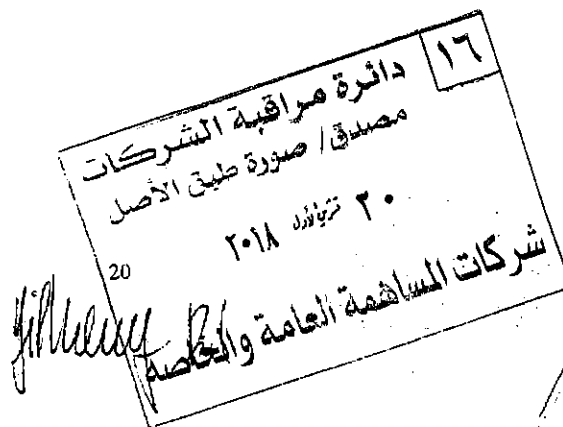 ١٦
دائرة مراقبة الشركات
مصدق / صورة طبق الأصل
٣٠ تشرين أول ٢٠١٨
20
شركات المساهمة العامة والخاصة